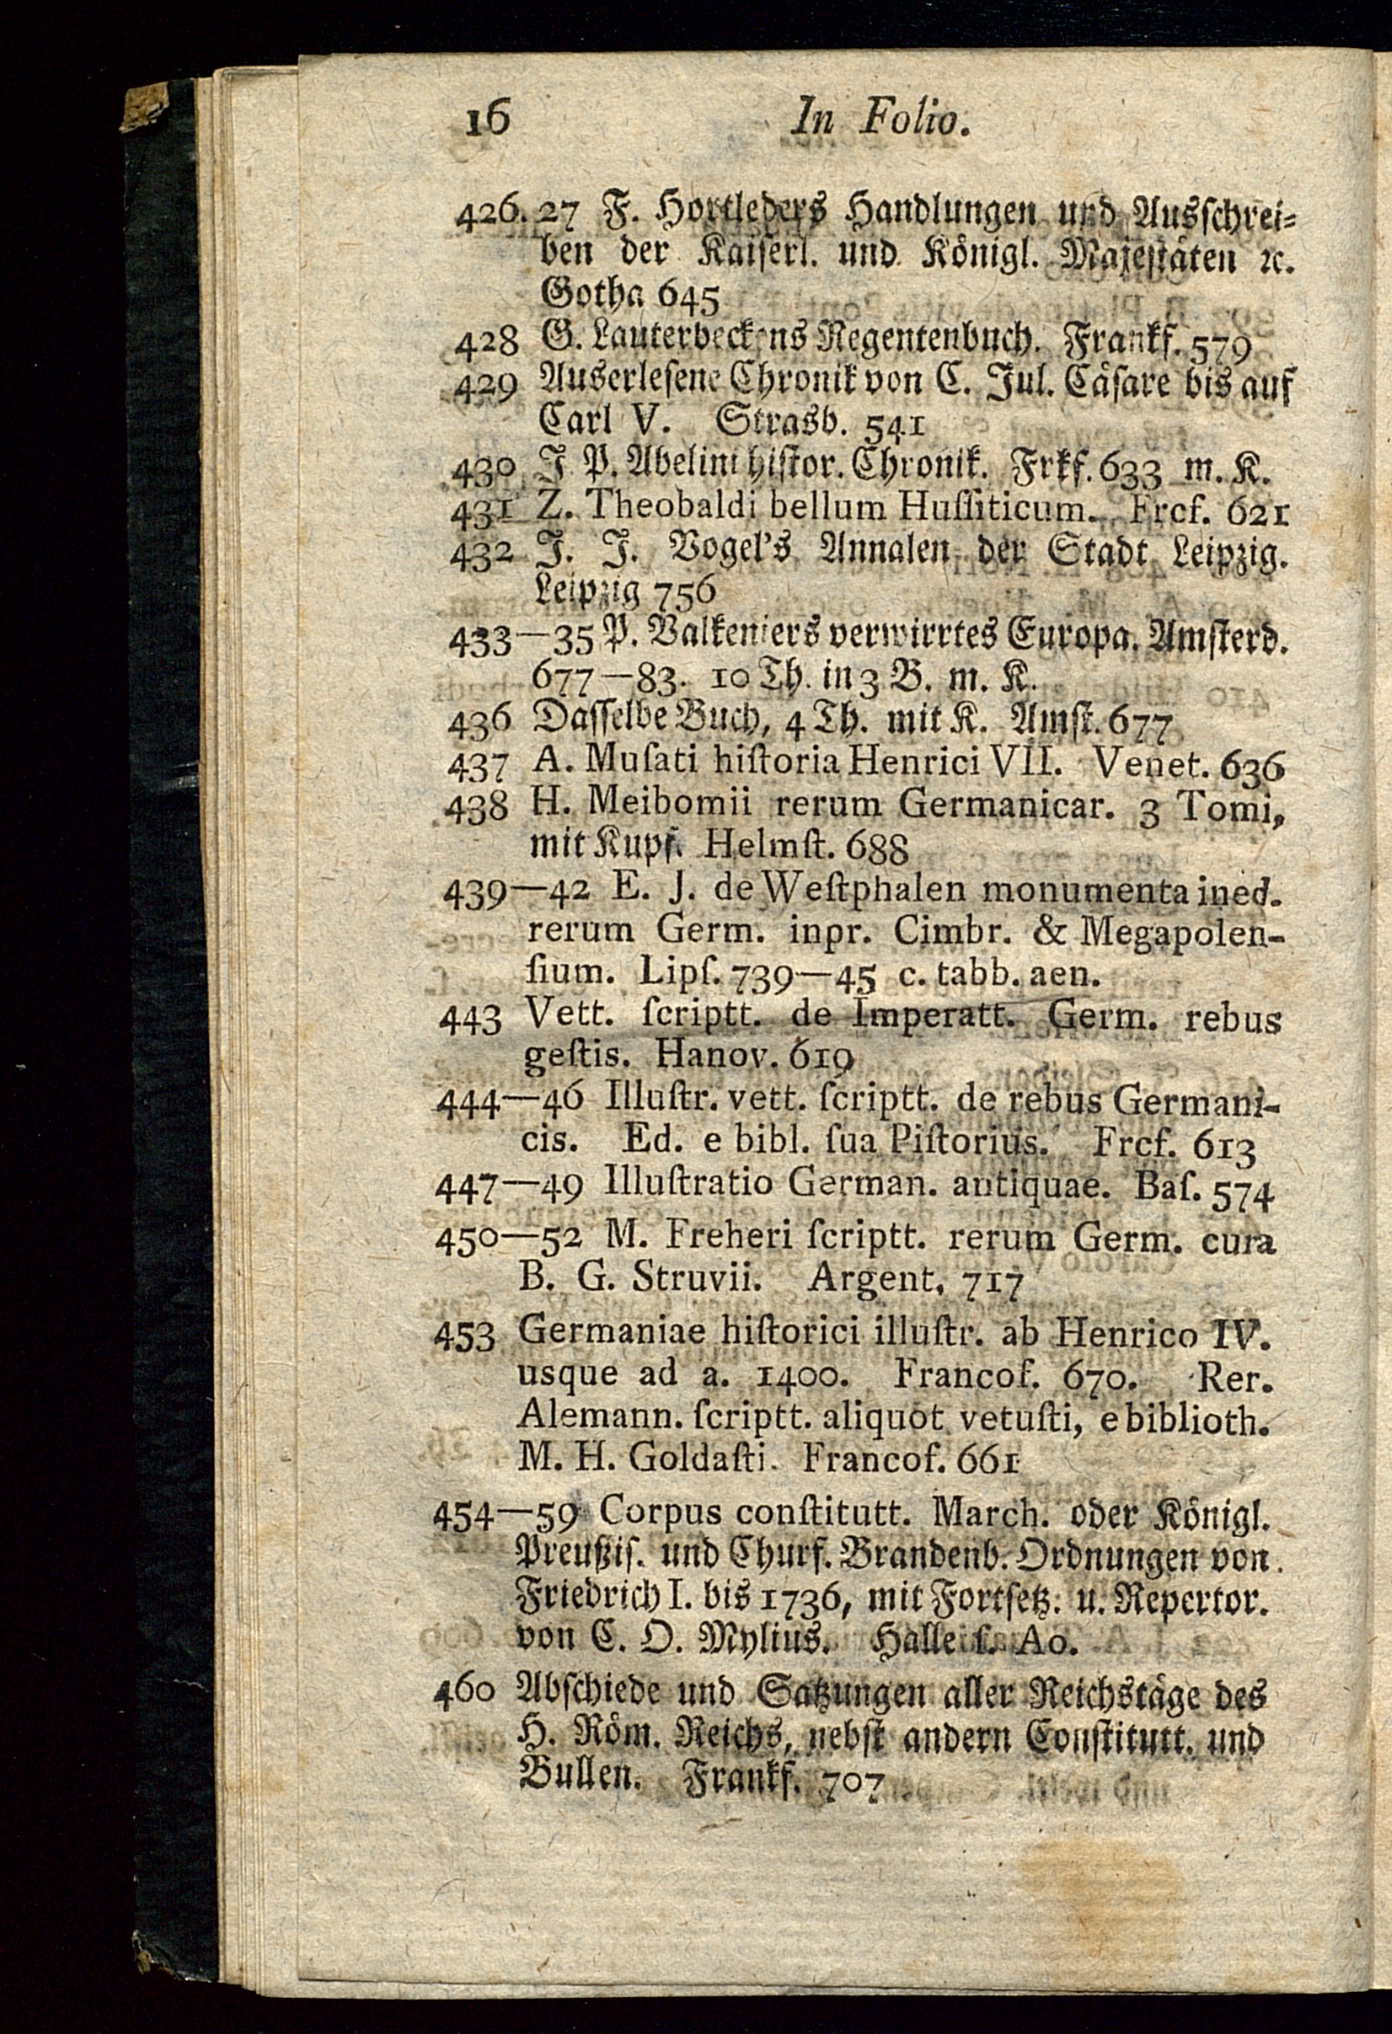 16 In Folio.
426. 27 F. Hortleders Handlungen und Ausschrei-
ben der Kaiserl. und Königl. Majestäten ꝛc.
Gotha 645
428 G. Lauterbeckens Regentenbuch. Frankf. 579
429 Auserlesene Chronik von C. Jul. Cäsare bis auf
Carl V. Strasb. 541
430 J P. Abelini histor. Chronik. Frkf. 633 m. K.
431 Z. Theobaldi bellum Huſſiticum. Frcf. 621
432 J. J. Vogel's Annalen der Stadt Leipzig.
Leipzig 756
433—35 P. Valkeniers verwirrtes Europa. Amsterd.
677—83. 10 Th. in 3 B. m. K.
436 Dasselbe Buch, 4 Th. mit K. Amst. 677
437 A. Muſati hiſtoria Henrici VII. Venet. 636
438 H. Meibomii rerum Germanicar. 3 Tomi,
mit Kupf. Helmſt. 688
439—42 E. J. de Weſtphalen monumenta ined.
rerum Germ. inpr. Cimbr. & Megapolen-
ſium. Lipſ. 739—45 c. tabb. aen.
443 Vett. ſcriptt. de Imperatt. Germ. rebus
geſtis. Hanov. 619
444—46 Illuſtr. vett. ſcriptt. de rebus Germani-
cis. Ed. e bibl. ſua Piſtorius. Frcf. 613
447—49 Illuſtratio German. antiquae. Baſ. 574
450—52 M. Freheri ſcriptt. rerum Germ. cura
B. G. Struvii. Argent. 717
453 Germaniae hiſtorici illuſtr. ab Henrico IV.
usque ad a. 1400. Francof. 670. Rer.
Alemann. ſcriptt. aliquot vetuſti, e biblioth.
M. H. Goldaſti. Francof. 661
454—59 Corpus conſtitutt. March. oder Königl.
Preußis. und Churf. Brandenb. Ordnungen von
Friedrich I. bis 1736, mit Fortsetz. u. Repertor.
von C. O. Mylius. Halle ſ. Ao.
460 Abschiede und Satzungen aller Reichstäge des
H. Röm. Reichs, nebst andern Constitutt. und
Bullen. Frankf. 707